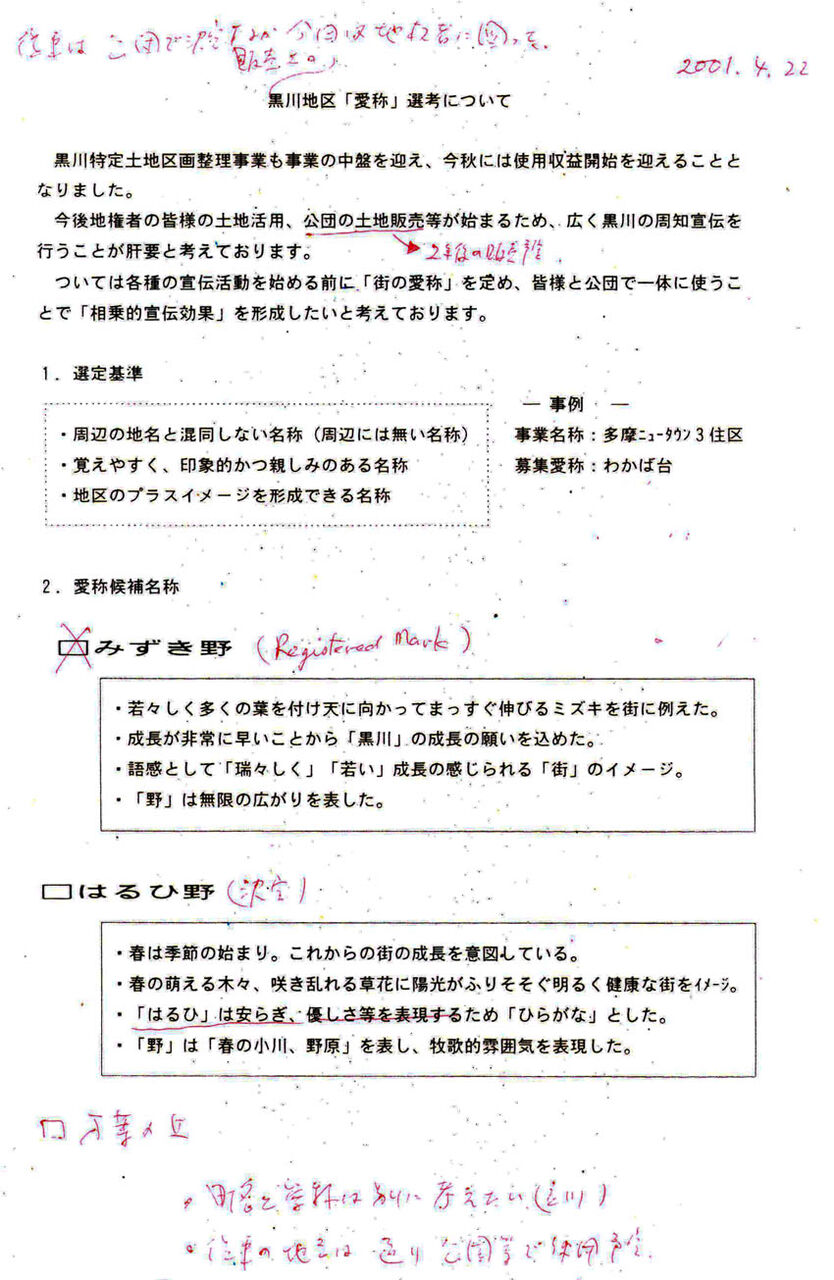 従来は公団で決定するが今回は地权者に図って、
販売上の
2001.4.22
黒川地区「愛称」選考について
黒川特定土地区画整理事業も事業の中盤を迎え、今秋には使用収益開始を迎えることと
なりました。
今後地権者の皆様の土地活用、公団の土地販売等が始まるため、広く黒川の周知宣伝を
行うことが肝要と考えております。
2年後の販売予定
ついては各種の宣伝活動を始める前に「街の愛称」を定め、皆様と公団で一体に使うこ
とで「相乗的宣伝効果」を形成したいと考えております。
1．選定基準
・周辺の地名と混同しない名称（周辺には無い名称）
・覚えやすく、印象的かつ親しみのある名称
・地区のプラスイメージを形成できる名称
― 事例 ―
事業名称：多摩ﾆｭｰﾀｳﾝ3住区
募集愛称：わかば台
2．愛称候補名称
□みずき野 (Registered Mark)
・若々しく多くの葉を付け天に向かってまっすぐ伸びるミズキを街に例えた。
・成長が非常に早いことから「黒川」の成長の願いを込めた。
・語感として「瑞々しく」「若い」成長の感じられる「街」のイメージ。
・「野」は無限の広がりを表した。
□はるひ野 (決定)
・春は季節の始まり。これからの街の成長を意図している。
・春の萌える木々、咲き乱れる草花に陽光がふりそそぐ明るく健康な街をｲﾒｰｼﾞ。
・「はるひ」は安らぎ、優しさ等を表現するため「ひらがな」とした。
・「野」は「春の小川、野原」を表し、牧歌的雰囲気を表現した。
□ 万葉の丘
・町名と学校は別に考えたい(立川)
・従来の地名は通り公園等で使用予定